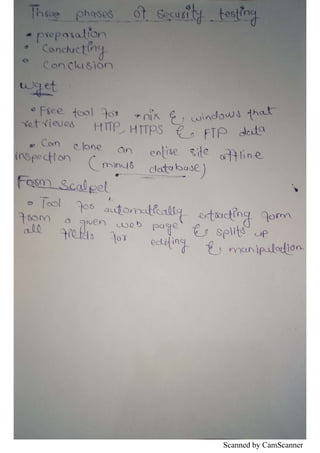 Three phases of security testing
• preparation
• Conducting
• Conclusion
wget
• Free tool for *nix & windows that
retrieves HTTP, HTTPS & FTP data
• Can clone an entire site offline
inspection (minus database)
Form Scalpel
• Tool for automatically extracting form
from a given web page & splits up
all fields for editing & manipulation
Scanned by CamScanner